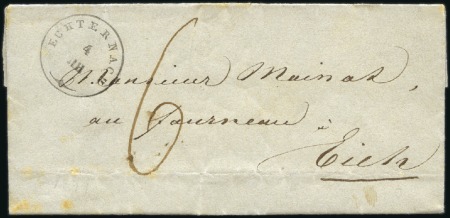 ECHTERNACH
4
6
Monsieur Mainat,
au fourneau à
Eich